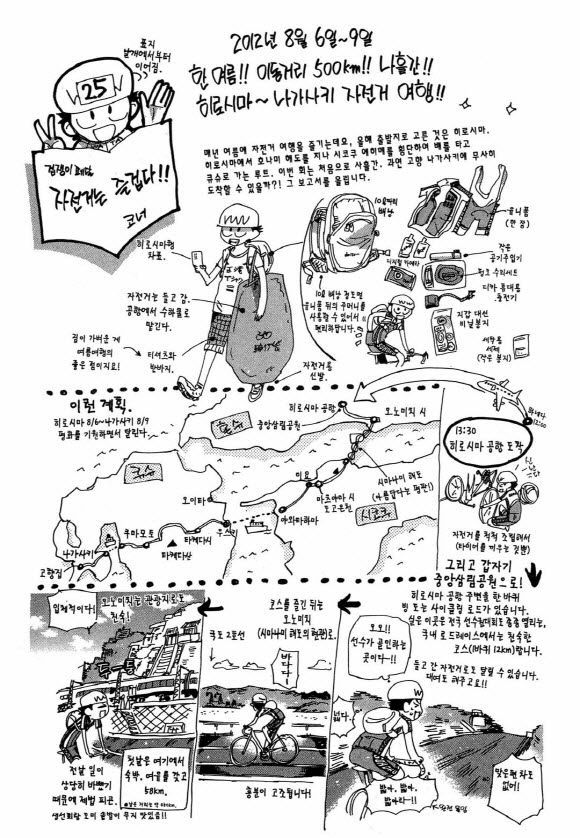 표지
날개에서부터
이어짐.
2012년 8월 6일~9일
한 여름!! 이동거리 500km!! 나흘간!!
히로시마~ 나가사키 자전거 여행!!
25
자전거는 즐겁다!!
코너
매년 여름에 자전거 여행을 즐기는데요, 올해 출발지로 고른 것은 히로시마.
히로시마에서 시코쿠 에히메를 횡단하여 배를 타고
큐슈로 가는 루트. 이번 회는 처음으로 사흘간, 과연 고향 나가사키에 무사히
도착할 수 있을까?! 그 보고서를 올립니다.
히로시마행
차표.
자전거는 들고 감.
공항에서 수하물로
맡긴다.
짐이 가벼운 게
여름여행의
좋은 점이지요!
티셔츠와
반바지.
자전거용
신발.
편리하답니다.
디지털 카메라
(한 장)
작은
공기주입기
펑크 수리세트
디카 휴대용
충전기
지갑 대신
비닐봉지
세탁용
세제
(작은 봉지)
이런 계획.
히로시마 8/6~나가사키 8/9
평화를 기원하면서 달린다.
히로시마 공항
중앙삼림공원
오노미치 시
혼슈
큐슈
시코쿠
시마나미 해도
(아름답다는 평판!)
이요
마츠야마 시
도고온천
야와타하마
오이타
우스키
타케다시
쿠마모토
나가사키
고향집
13:30
히로시마 공항 도착
자전거를 척척 조립해서
(타이어를 끼우는 것뿐)
그리고 갑자기
중앙삼림공원으로!
히로시마 공항 주변을 한 바퀴
빙 도는 사이클링 로드가 있습니다.
실은 이곳은 전국 선수권대회도 종종 열리는,
국내 로드레이스에서는 친숙한
코스(1바퀴 12km)랍니다.
들고 간 자전거로도 달릴 수 있습니다.
대여도 해주고요!!
입체적이다!
오노미치는 관광지로도
친숙!
두-둥
전날 일이
상당히 바빴기
때문에 제법 피곤.
첫날은 여기에서
숙박. 여유를 갖고
58km.
생선회랑 도미 솥밥이 무지 맛있음!!
코스를 즐긴 뒤는
오노미치
(시마나미 해도의 현관)로.
국도 2호선
바다다~
흥분이 고조됩니다!
오오!!
선수가 골인하는
곳이다~!!
밟자.
밟자, 밟자,
밟자라~!!
맞은편 차도
없어!